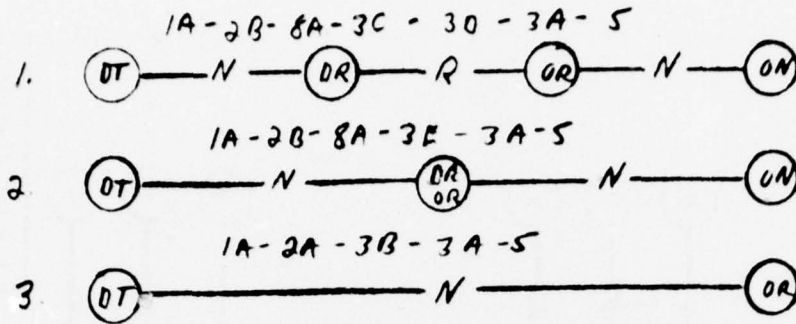 1A-2B-8A-3C-3D-3A-5
1. DT N DR R OR N ON
1A-2B-8A-3E-3A-5
2 DT N DR OR N ON
1A-2A-3B-3A-5
3 DT N OR